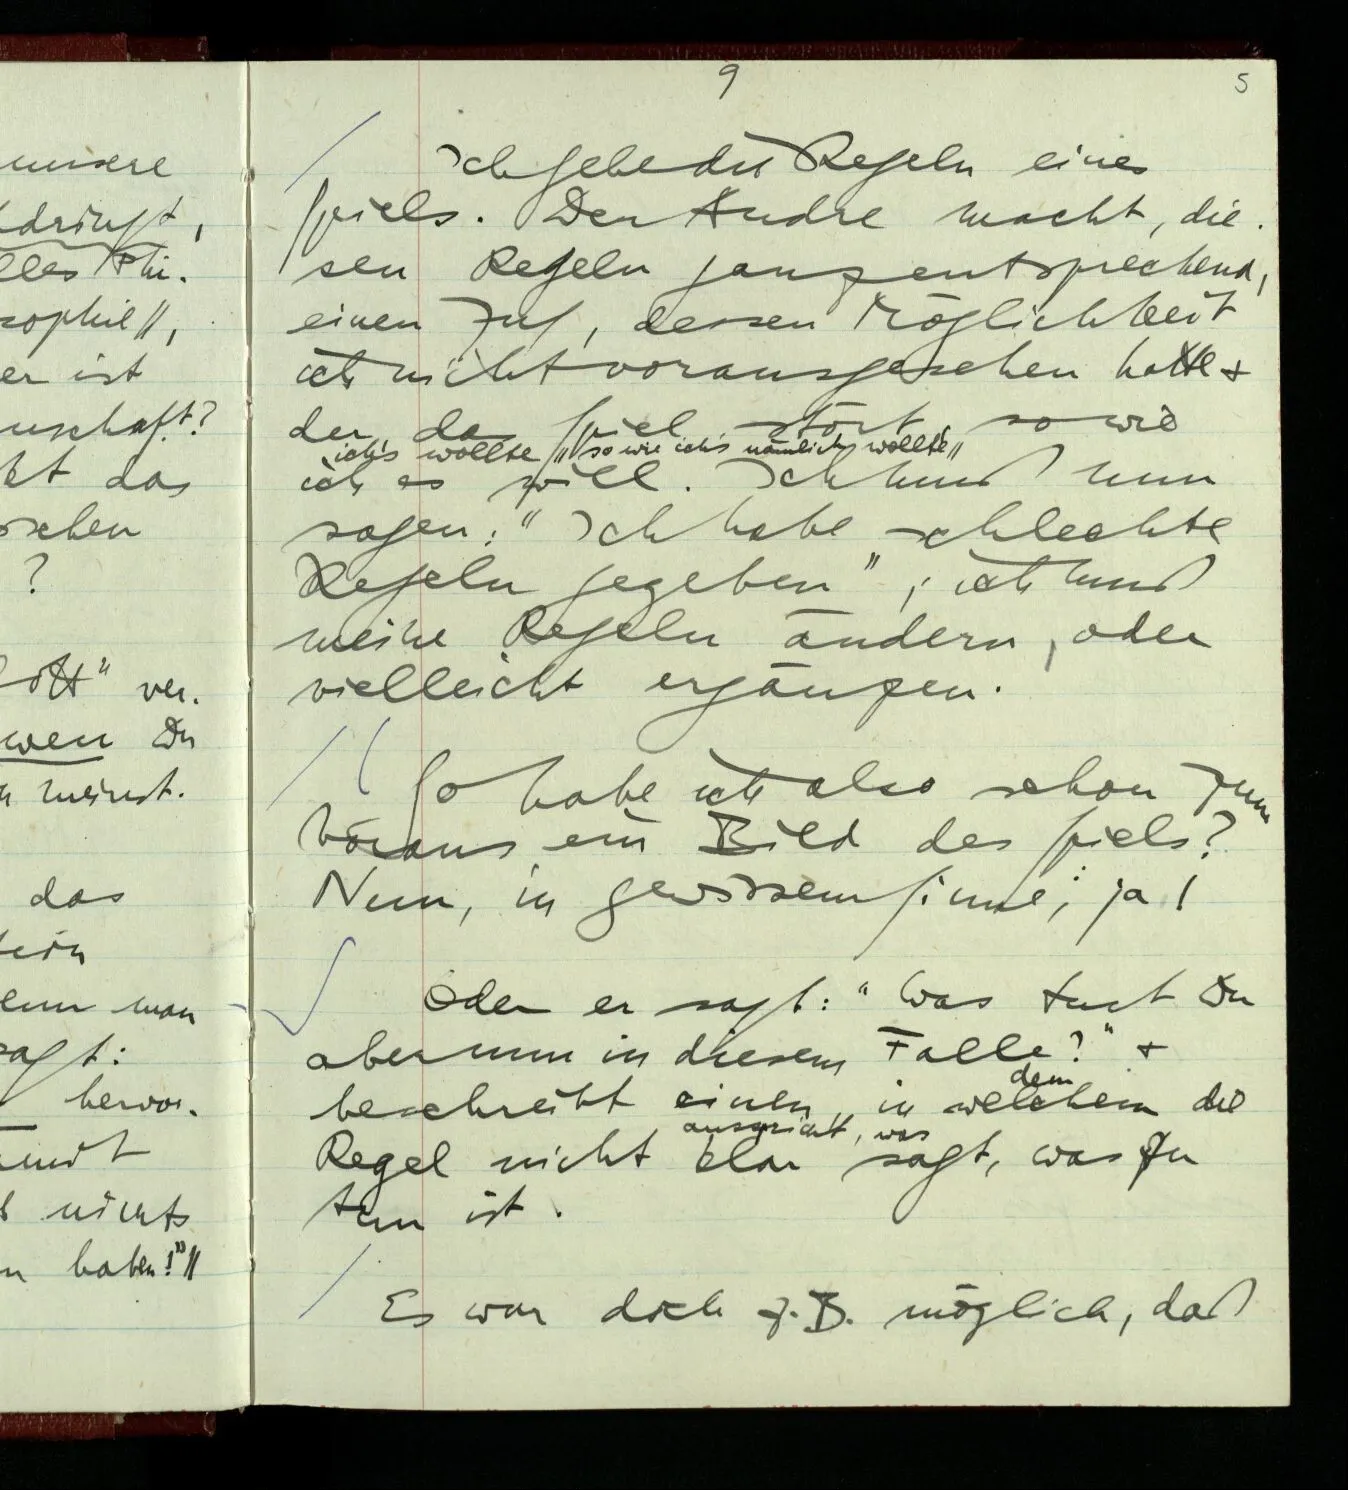 unsere
dringt,
lles Phi-
sophie∥,
er ist
nschaft?
kt das
schen
?
Gott" ver-
wen Du
n meinst.
das
tein
enn man
sagt:
hervor-
nichts
n haben!"∥
9
5
Ich gebe die Regeln eines
Spiels. Der Andre macht, die-
sen Regeln ganz entsprechend,
einen Zug, dessen Möglichkeit
ich nicht vorausgesehen hatte +
der das Spiel stört, so wie
ich's wollte ∥so wie ich's nämlich wollte∥
ich es will. Ich muß nun
sagen: "Ich habe schlechte
Regeln gegeben"; ich muß
meine Regeln ändern, oder
vielleicht ergänzen.
So habe ich also schon zum
Voraus ein Bild des Spiels?
Nun, in gewissem Sinne; ja!
Oder er sagt: "Was tust Du
aber nun in diesem Falle?" +
dem
beschreibt einen, in welchem die
ausspricht, was
Regel nicht klar sagt, was zu
tun ist.
Es war doch z.B. möglich, daß